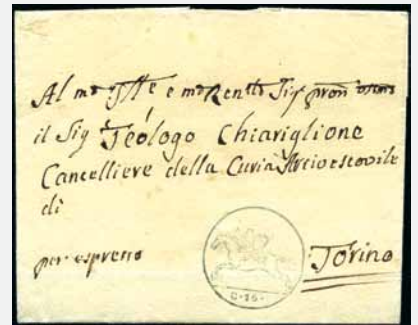 Al mo Illre e mo Rendo Sigr pron osmo
il Sig Teólogo Chiariglione
Cancelliere della Curia Arcivescovile
di
per espresso
Torino
C. 15